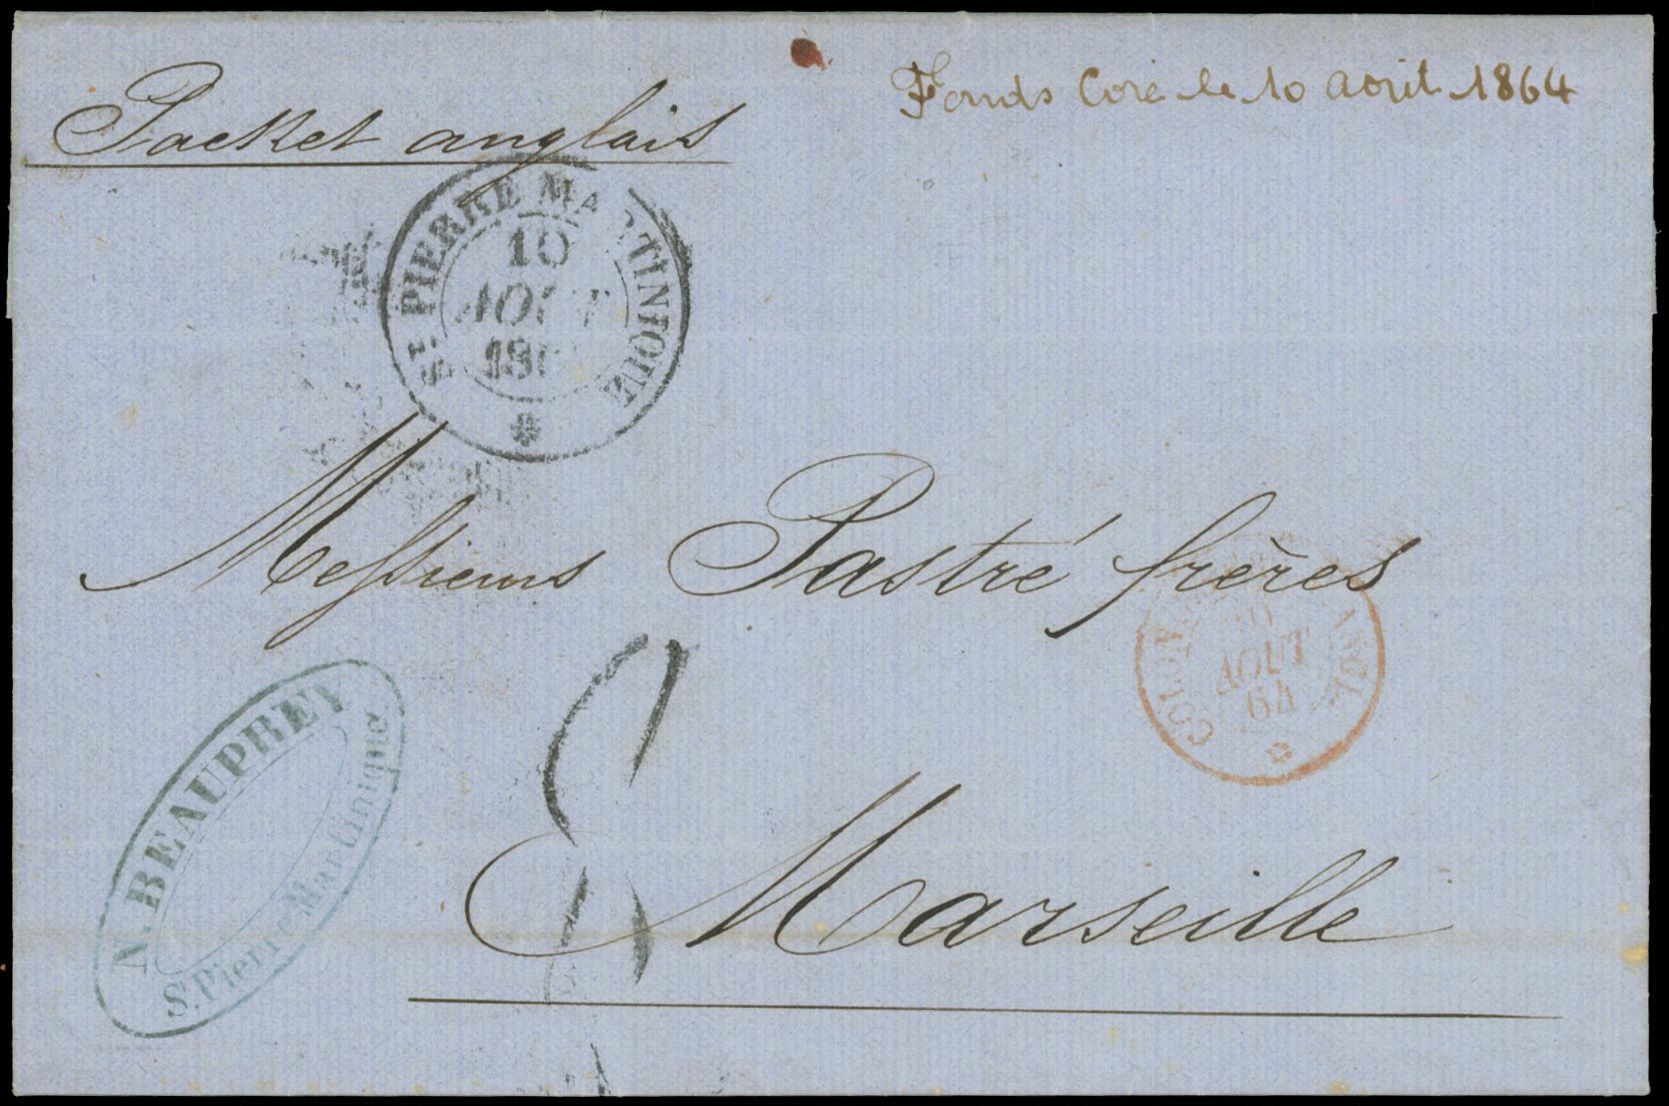 Packet anglais
Fonds Coré le 10 août 1864
ST. PIERRE MARTINIQUE
10
AOUT
Messieurs Pastré frères
AOUT
64
8
N. BEAUPREY
St. Pierre Martinique
Marseille